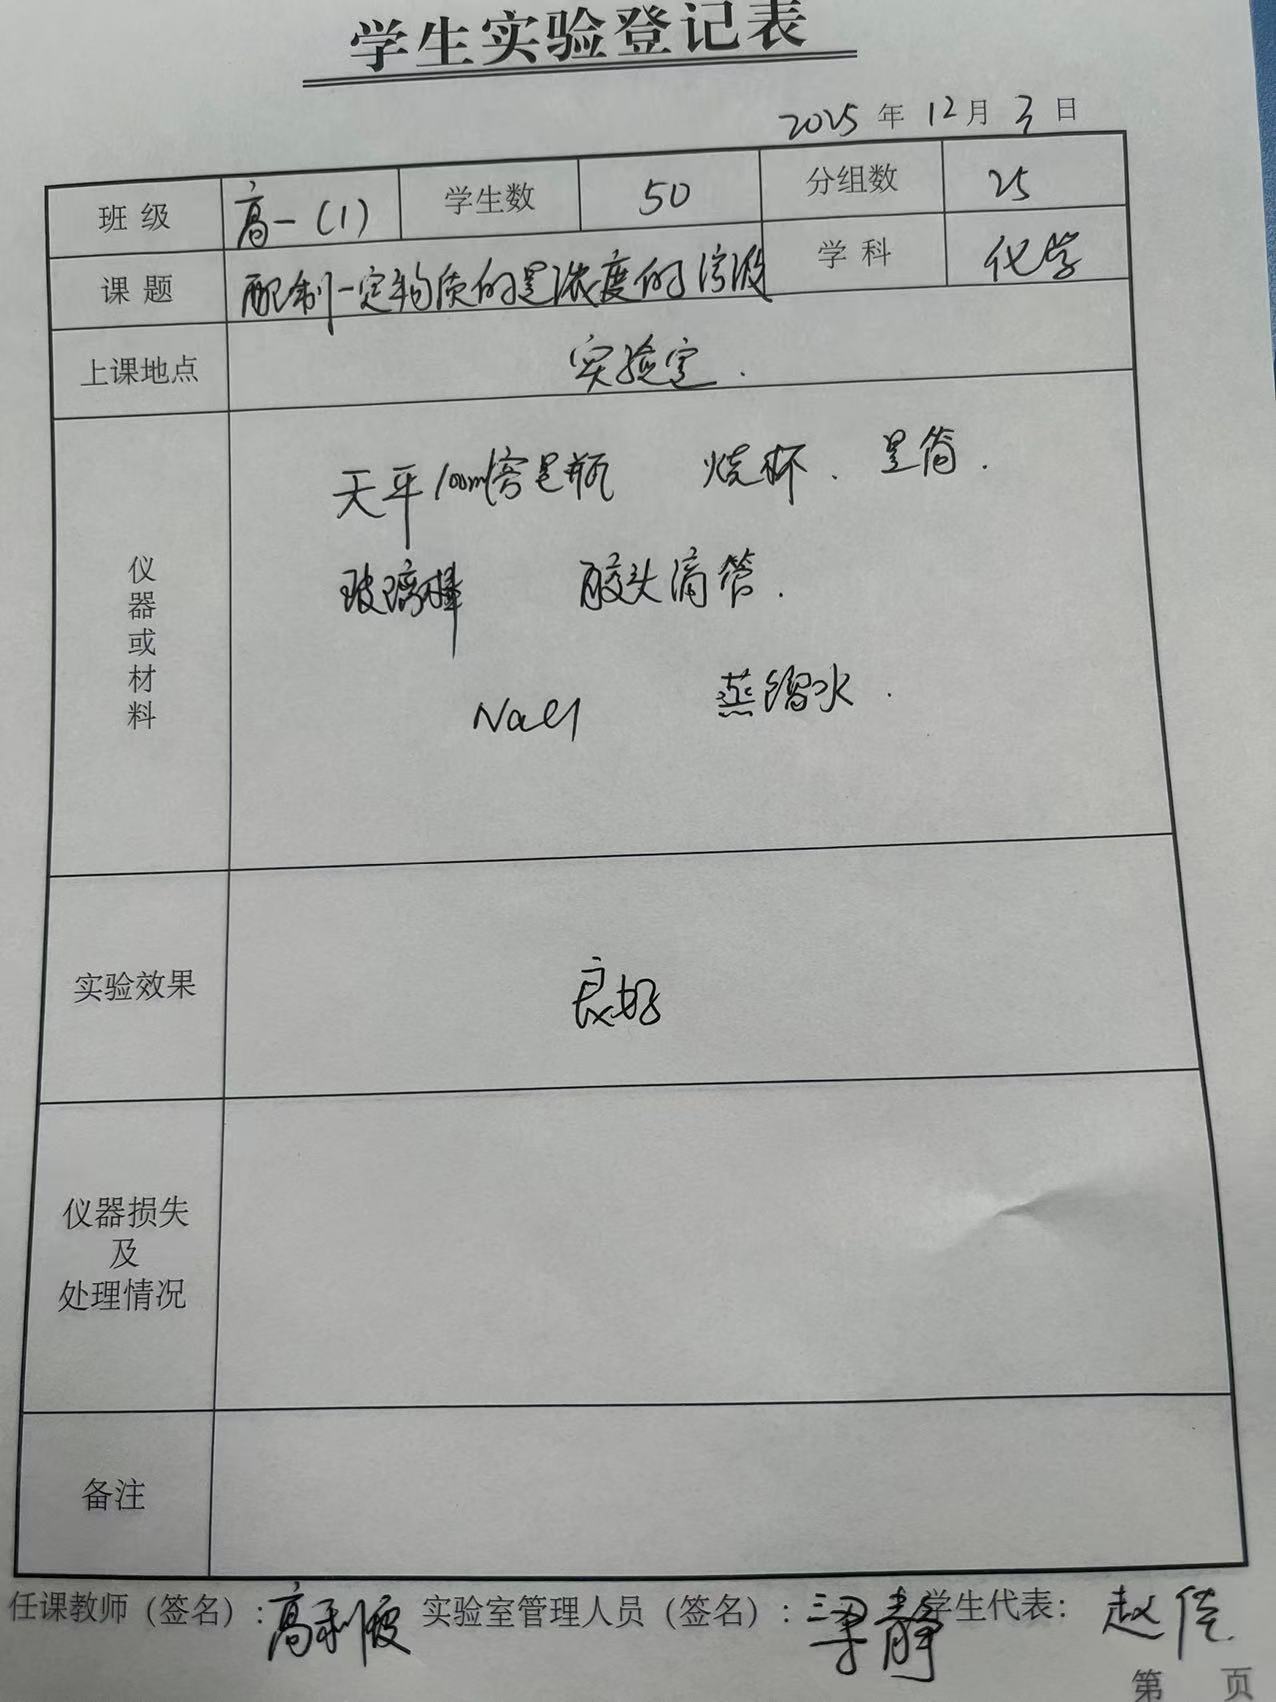 学生实验登记表
2025年12月3日
班级 高一(1) 学生数 50 分组数 25
课题 配制一定物质的量浓度的溶液 学科 化学
上课地点 实验室.
仪器或材料
天平 100ml容量瓶 烧杯. 量筒.
玻璃棒 胶头滴管.
NaCl 蒸馏水.
实验效果 良好
仪器损失
及
处理情况
备注
任课教师(签名):高利霞 实验室管理人员(签名):梁静 学生代表:赵佳
第 页